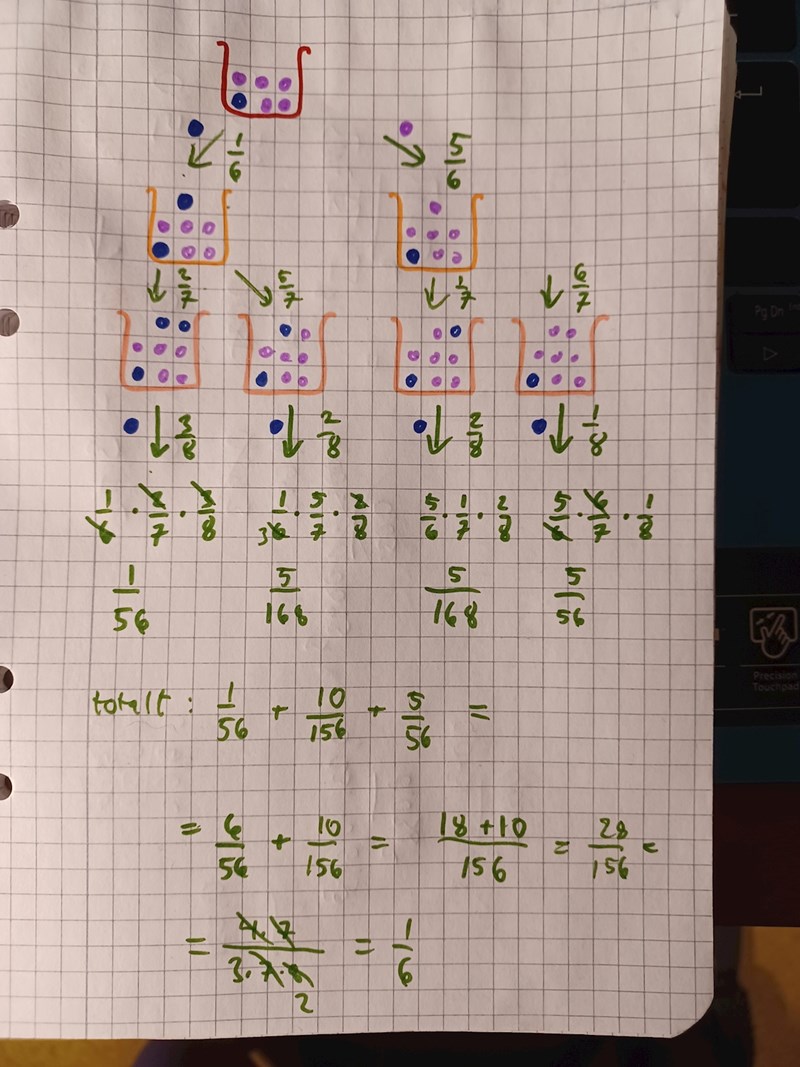 1/6 5/6
2/7 5/7 1/7 6/7
3/8 2/8 2/8 1/8
1/6 · 2/7 · 3/8 1/6 3 · 5/7 · 2/8 5/6 · 1/7 · 2/8 5/6 · 6/7 · 1/8
1/56 5/168 5/168 5/56
totalt: 1/56 + 10/156 + 5/56 =
= 6/56 + 10/156 = 18+10/156 = 28/156 =
= 4·7/3·7·8 2 = 1/6
Pg Dn
Precision
Touchpad